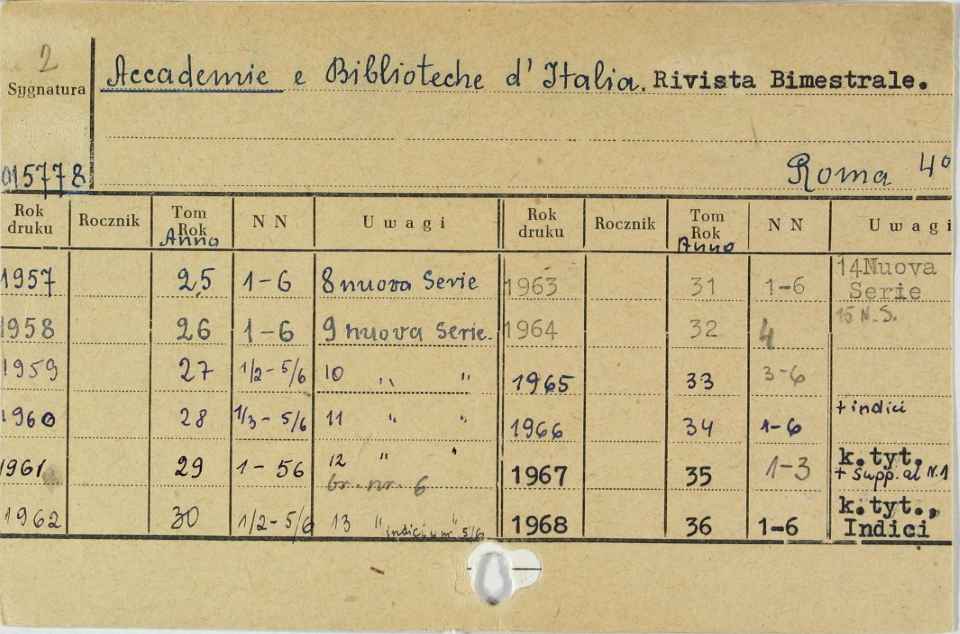 2
Sygnatura
Accademie e Biblioteche d'Italia. Rivista Bimestrale.
015778
Roma 4°
Rok druku Rocznik Tom Rok Anno N N Uwagi Rok druku Rocznik Tom Rok Anno N N Uwagi
1957 25 1-6 8 nuova Serie 1963 31 1-6 14 Nuova Serie
1958 26 1-6 9 nuova Serie. 1964 32 4 15 N.S.
1959 27 1/2-5/6 10 " " 1965 33 3-6
1960 28 1/3-5/6 11 " " 1966 34 1-6 + indici
1961 29 1-56 12 " " br. nr. 6 1967 35 1-3 k.tyt. + Supp. al N.1
1962 30 1/2-5/6 13 " " 5/6 1968 36 1-6 k.tyt., Indici